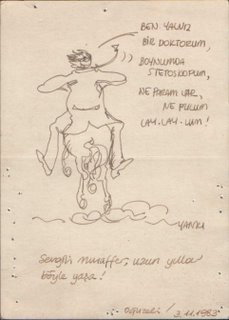 BEN YALNIZ
BİR DOKTORUM,
BOYNUMDA
STETOSKOPUM,
NE PARAM VAR,
NE PULUM
LAY-LAY-LUM!
YANKI
Sevgili Muzaffer, uzun yıllar
böyle yaşa!
3.11.1983